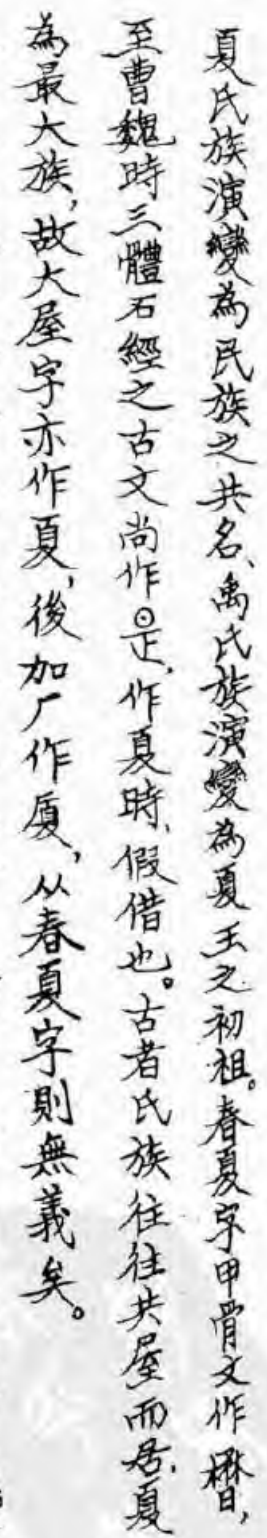 夏氏族演變為民族之共名、禹氏族演變為夏王之初祖。春夏字甲骨文作,
至曹魏時三體石經之古文尚作昰,作夏時、假借也。古者氏族往往共屋而居,夏
為最大族,故大屋字亦作夏,後加厂作厦,从春夏字則無義矣。